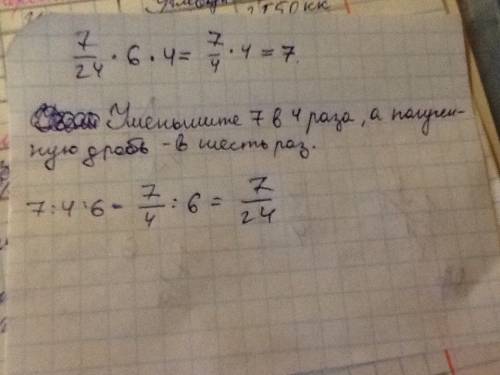 7/24 · 6 · 4 = 7/4 · 4 = 7.
Уменьшите 7 в 4 раза, а получен-
ную дробь - в шесть раз.
7 : 4 : 6 - 7/4 : 6 = 7/24